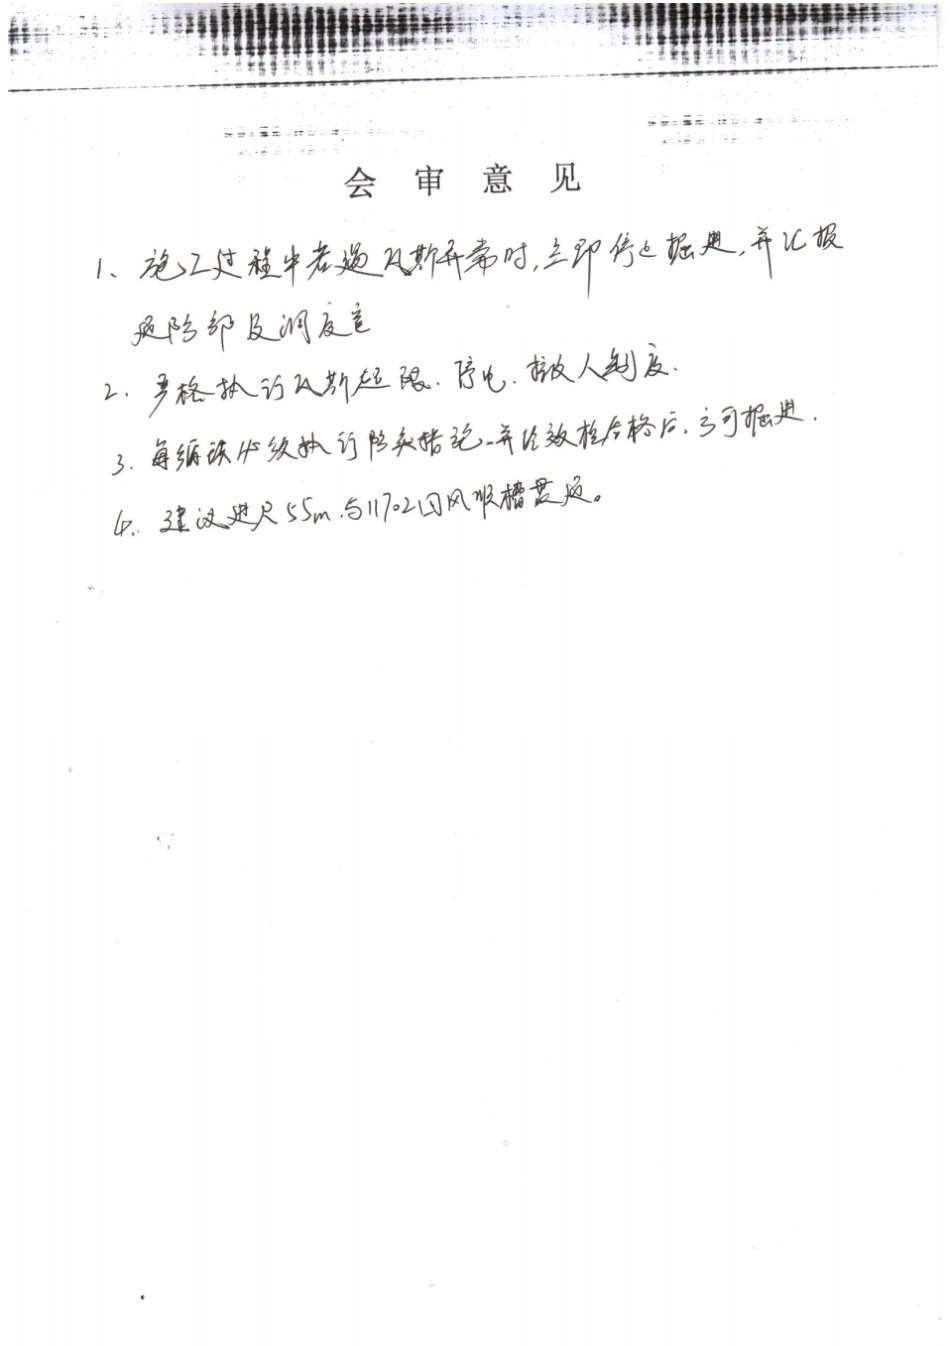 会审意见
1、施工过程中若遇瓦斯异常时,立即停止掘进,并汇报
通防部及调度室
2. 严格执行瓦斯超限、停电、撤人制度.
3. 每循环必须执行防突措施,并经效检合格后,方可掘进.
4. 建议进尺55m与11702回风顺槽贯通。